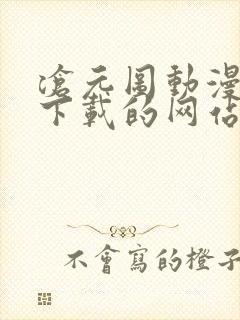 滄元圖動漫
下載的网佔
不會寫的橙子